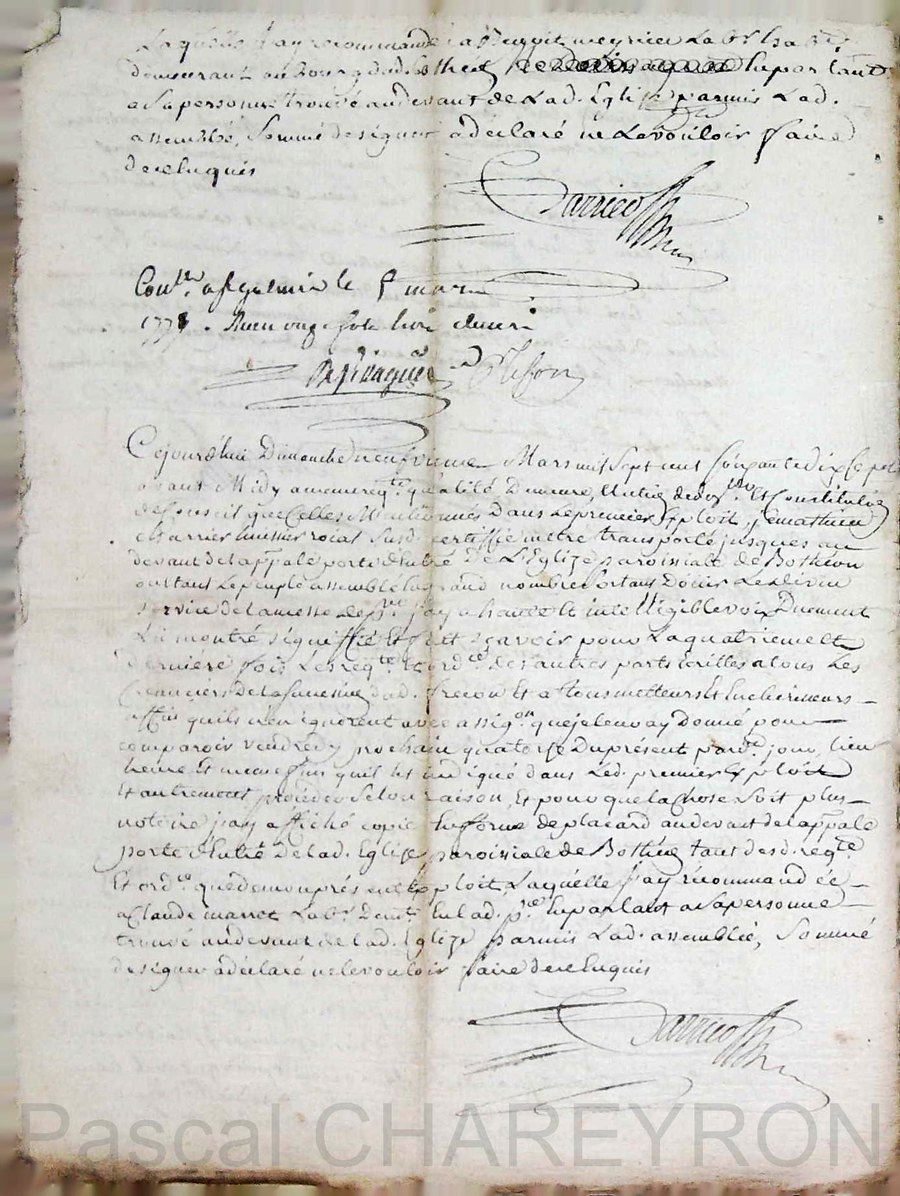 Laquelle j'ay recommandé a Benoit meynier Labr. hab.
demeurant au Bourg dud. Bothéon en parlant
a sa personne trouvé au devant de Lad. Eglize parmis Lad.
assemblée, Sommé de signer a déclaré ne Le vouloir faire
de ce Enquis
Carrier
Conlle. a St galmier le 5 mars
177 . Reçu onze sols
Cejourd'hui Dimanche neufvieme Mars mil Sept cent Soixante dix Sept
avant Midy a memes reqte. qualité, Demeure, Election de dom. et Constitution
de Conseil que Celles Mentionnés dans Le premier Exploit, je mathieu
Carrier huissier roial Susd. certiffie m'etre transporté jusques au
devant de la ppale porte d'entré de L'Eglize paroissiale de Bothéon
ou étant Le peuple assemblé en grand nombre Sortans d'ouir Le divin
Service de la messe de pse. j'ay a haute et intelligible voix Duement
Lu montré signiffié et fait sçavoir pour La quatrieme et
derniere fois Les reqte. et ordce. des autres parts Ecrittes a tous Les
Creanciers de la Succession dud. frecon et a tous metteurs et Encherisseurs
affin qu'ils n'en ignorent avec assigon. que je leur ay donné pour
comparoir vendredy prochain quatorze du présent pard. jour, lieu
heure et mesmes fins qu'il Est indiqué dans Led. premier Exploit
Et autrement procéder Selon raison, Et pour que la chose Soit plus
notoire j'ay affiché copie En forme de placard au devant de la ppale
porte d'entré de Lad. Eglize paroissiale de Bothéon tant desd. reqte.
Et ordce. que de mon présent Exploit, Laquelle j'ay récommandée
a Claude marret Labr. Demt. En Lad. pse. En parlant a Sa personne
trouvé au devant de Lad. Eglize parmis Lad. assemblée, Sommé
de signer a déclaré ne le vouloir faire de ce Enquis
Carrier
Pascal CHAREYRON